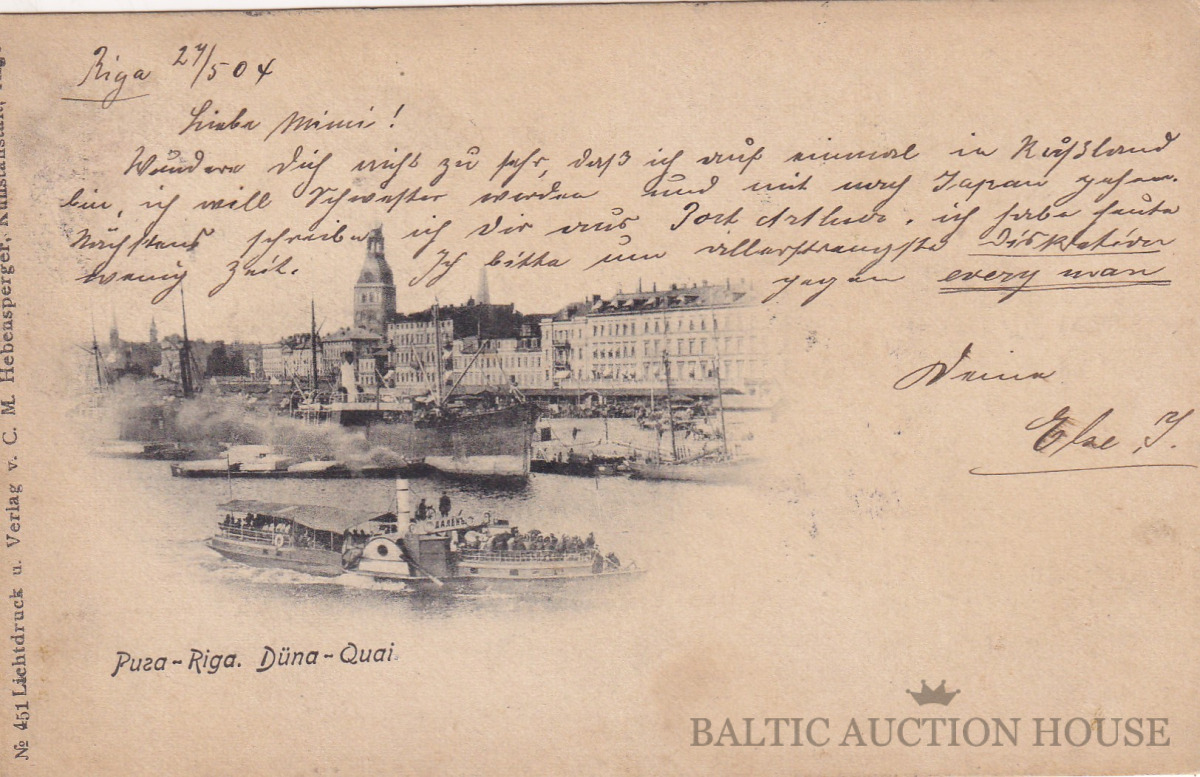 Riga 27/5 04
Liebe Mimi!
Wundere Dich nicht zu sehr, daß ich auf einmal in Rußland
bin, ich will Schwester werden und mit nach Japan gehen.
Nächstens schreibe ich Dir aus Port Arthur, ich habe heute
wenig Zeit. Ich bitte um allerstrengste Diskretion
gegen every man
Deine
Else J.
ДАЛЕНЪ
Рига-Riga. Düna-Quai.
№ 451 Lichtdruck u. Verlag v. C. M. Hebensperger, Kunstanstalt,
BALTIC AUCTION HOUSE